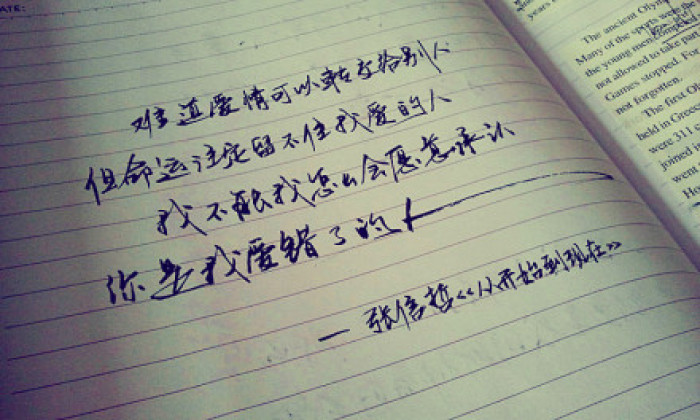 ATE:
难道爱情可以转交给别人
但命运注定留不住我爱的人
我不能我怎么会愿意承认
你是我爱错了的人
— 张信哲《从开始到现在》
years
The ancient Olym
Many of the sports were the
the young men
not allowed to take part
Games stopped. For
not forgotten.
The first Ol
held in Gree
were 311
joined in
went